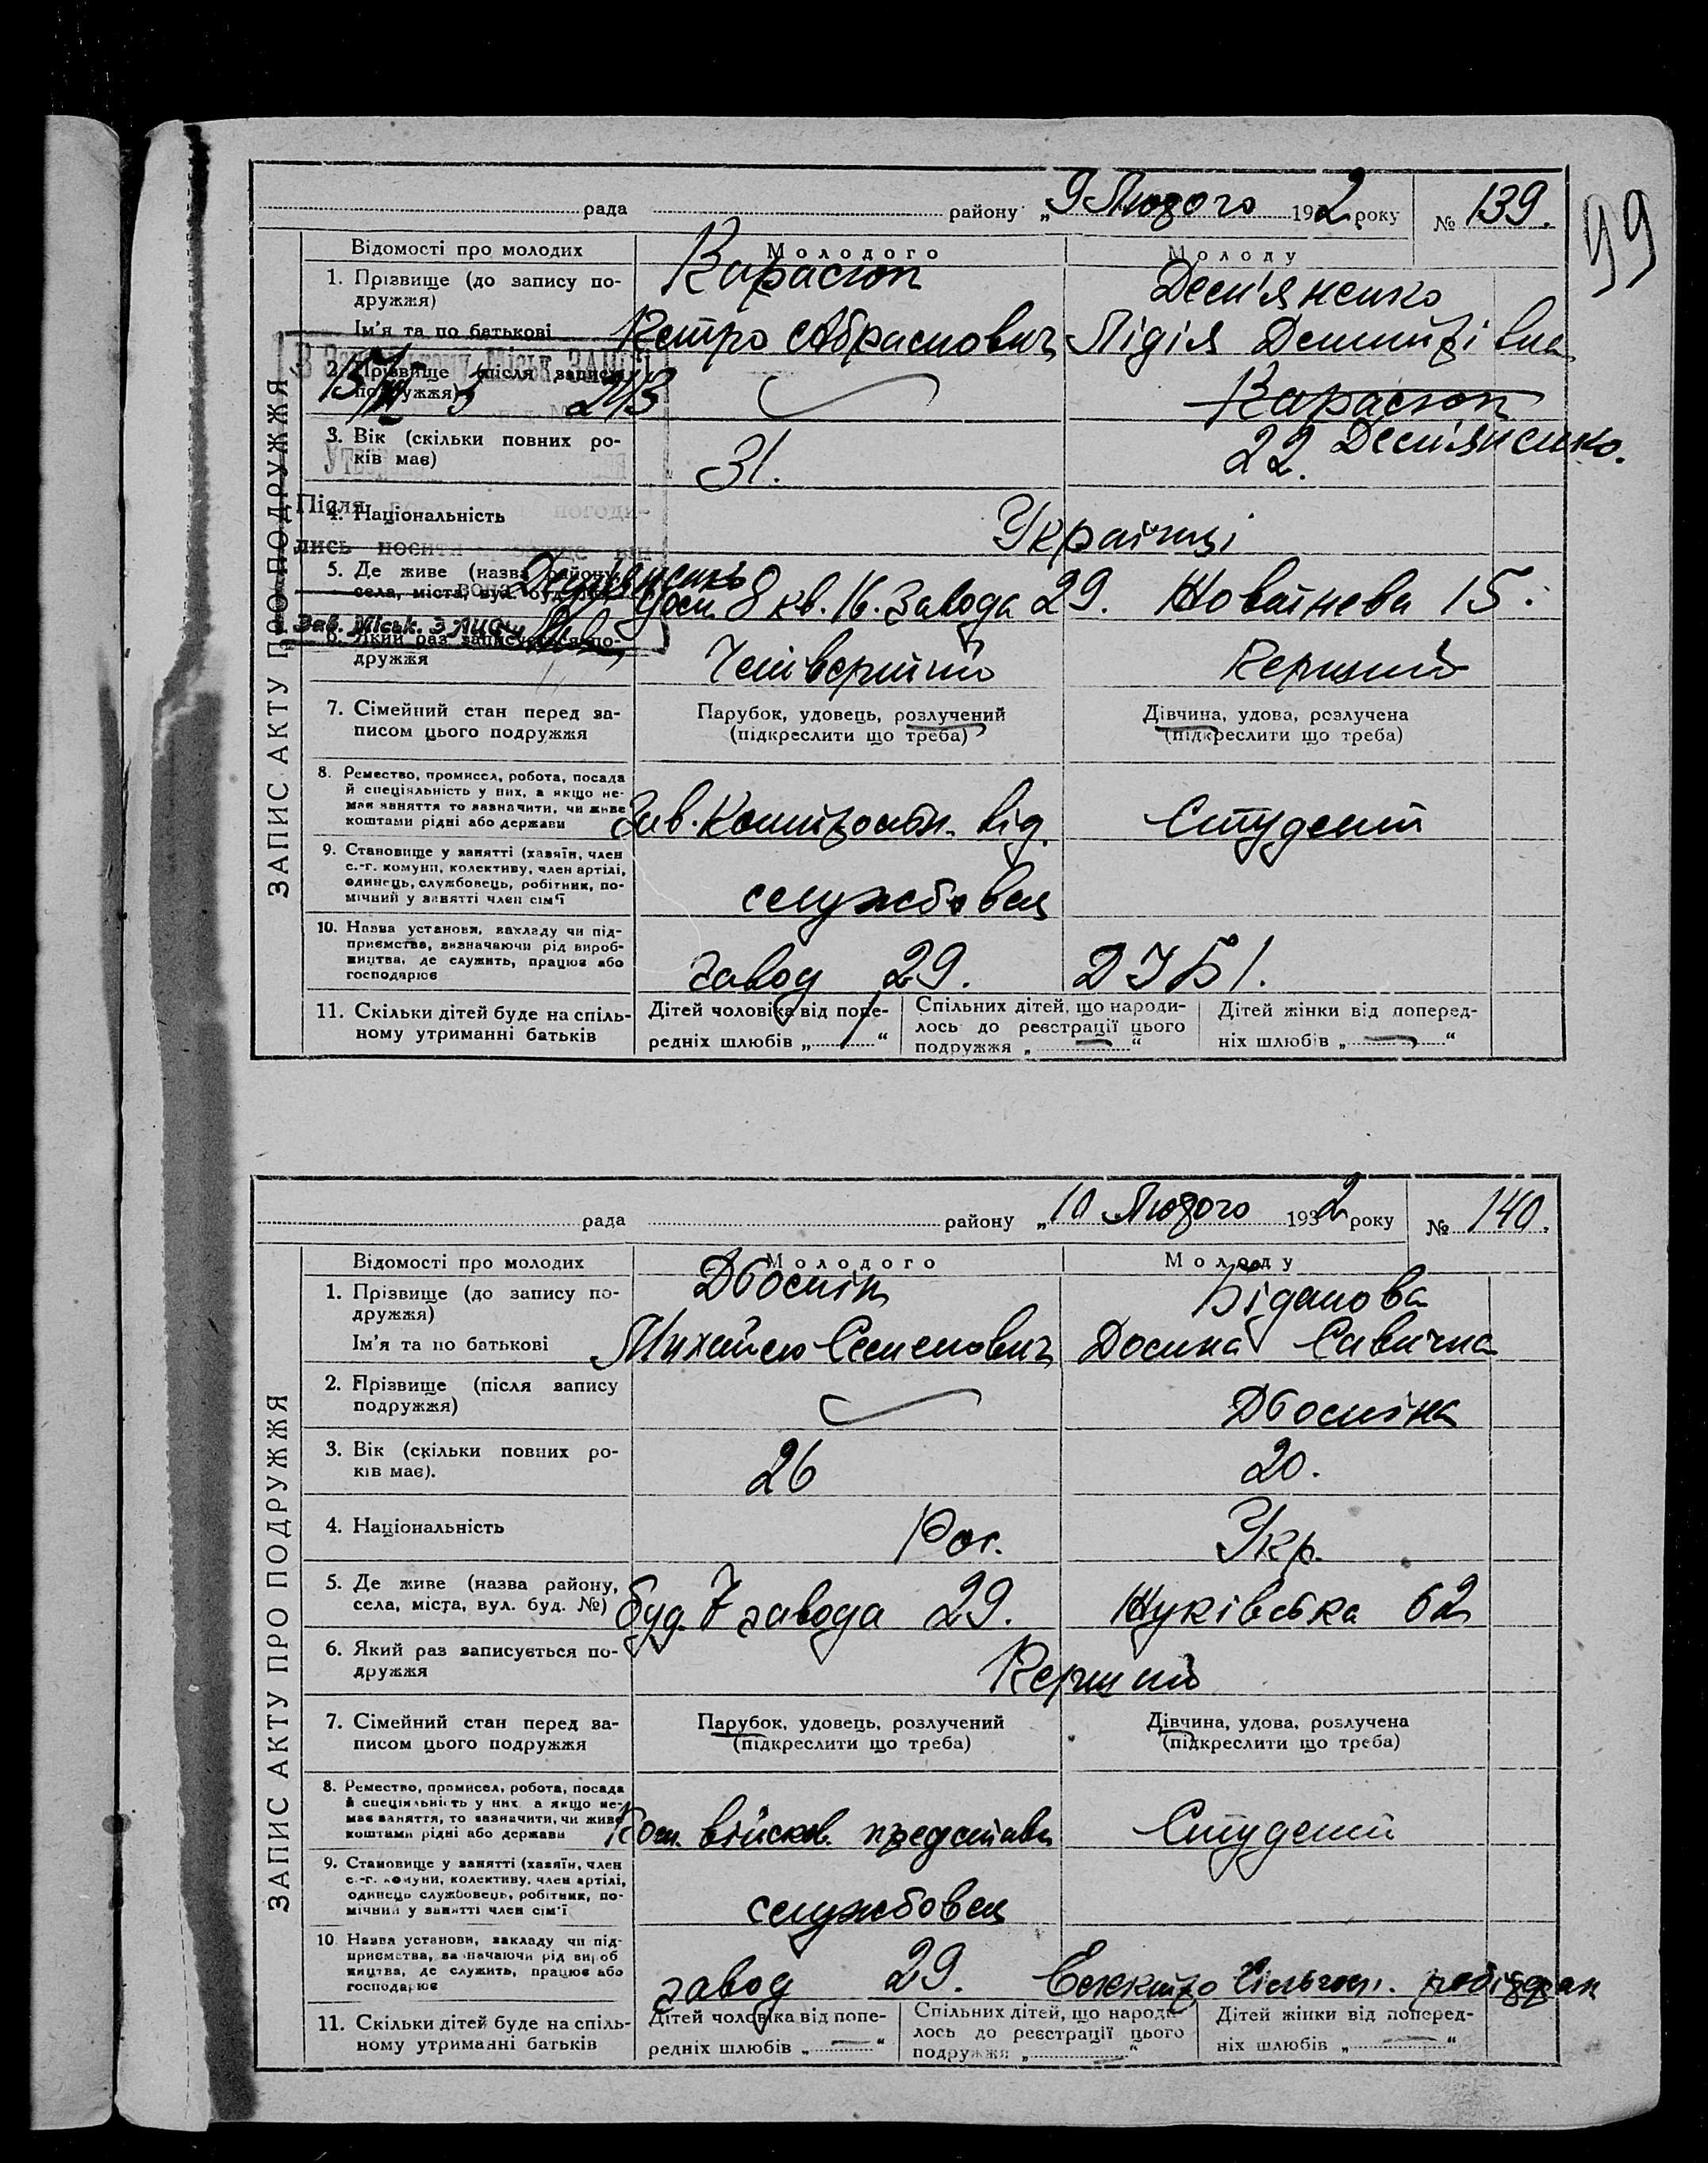 99
рада району „9 Лютого 1932 року № 139.
ЗАПИС АКТУ ПРО ПОДРУЖЖЯ
Відомості про молодих Молодого Молоду
1. Прізвище (до запису по-
дружжя)
Ім'я та по батькові
Петро Абрамович Лідія Дмитрівна
2. Прізвище (після запису
подружжя)
3. Вік (скільки повних ро-
ків має)
31. 22.
4. Національність
Українці
Після погоди-
лись носити
5. Де живе (назва району,
села, міста, вул. буд. №)
8 кв. 16. Завода 29. 15.
Зап. Міськ. ЗАЦСу
6. Який раз записується по-
дружжя
Четвертий Перший
7. Сімейний стан перед за-
писом цього подружжя
Парубок, удовець, розлучений
(підкреслити що треба)
Дівчина, удова, розлучена
(підкреслити що треба)
8. Ремество, промисел, робота, посада
й спеціяльність у них, а якщо не-
має заняття то зазначити, чи живе
коштами рідні або держави
Зав. від. Студент
9. Становище у занятті (хазяїн, член
с.-г. комуни, колективу, член артілі,
одинець, службовець, робітник, по-
мічний у занятті член сім'ї
службовец
10. Назва установи, закладу чи під-
приємства, визначаючи рід вироб-
ництва, де служить, працює або
господарює
завод 29.
11. Скільки дітей буде на спіль-
ному утриманні батьків
Дітей чоловіка від попе-
редніх шлюбів „ 1 “
Спільних дітей, що народи-
лось до реєстрації цього
подружжя „ — “
Дітей жінки від поперед-
ніх шлюбів „ — “
рада району „10 Лютого 1932 року № 140.
ЗАПИС АКТУ ПРО ПОДРУЖЖЯ
Відомості про молодих Молодого Молоду
1. Прізвище (до запису по-
дружжя)
Ім'я та по батькові
Михайло Семенович Савична
2. Прізвище (після запису
подружжя)
3. Вік (скільки повних ро-
ків має).
26 20.
4. Національність
Рос. Укр.
5. Де живе (назва району,
села, міста, вул. буд. №)
буд. 7 завода 29. 62
6. Який раз записується по-
дружжя
Перший
7. Сімейний стан перед за-
писом цього подружжя
Парубок, удовець, розлучений
(підкреслити що треба)
Дівчина, удова, розлучена
(підкреслити що треба)
8. Ремество, промисел, робота, посада
й спеціяльність у них, а якщо не-
має заняття, то зазначити, чи живе
коштами рідні або держави
військов. представ Студент
9. Становище у занятті (хазяїн, член
с.-г. комуни, колективу, член артілі,
одинець службовець, робітник, по-
мічний у занятті член сім'ї
службовец
10 Назва установи, закладу чи під-
приємства, зазначаючи рід вироб
ництва, де служить, працює або
господарює
завод 29.
11. Скільки дітей буде на спіль-
ному утриманні батьків
Дітей чоловіка від попе-
редніх шлюбів „ — “
Спільних дітей, що народи-
лось до реєстрації цього
подружжя „ — “
Дітей жінки від поперед-
ніх шлюбів „ — “